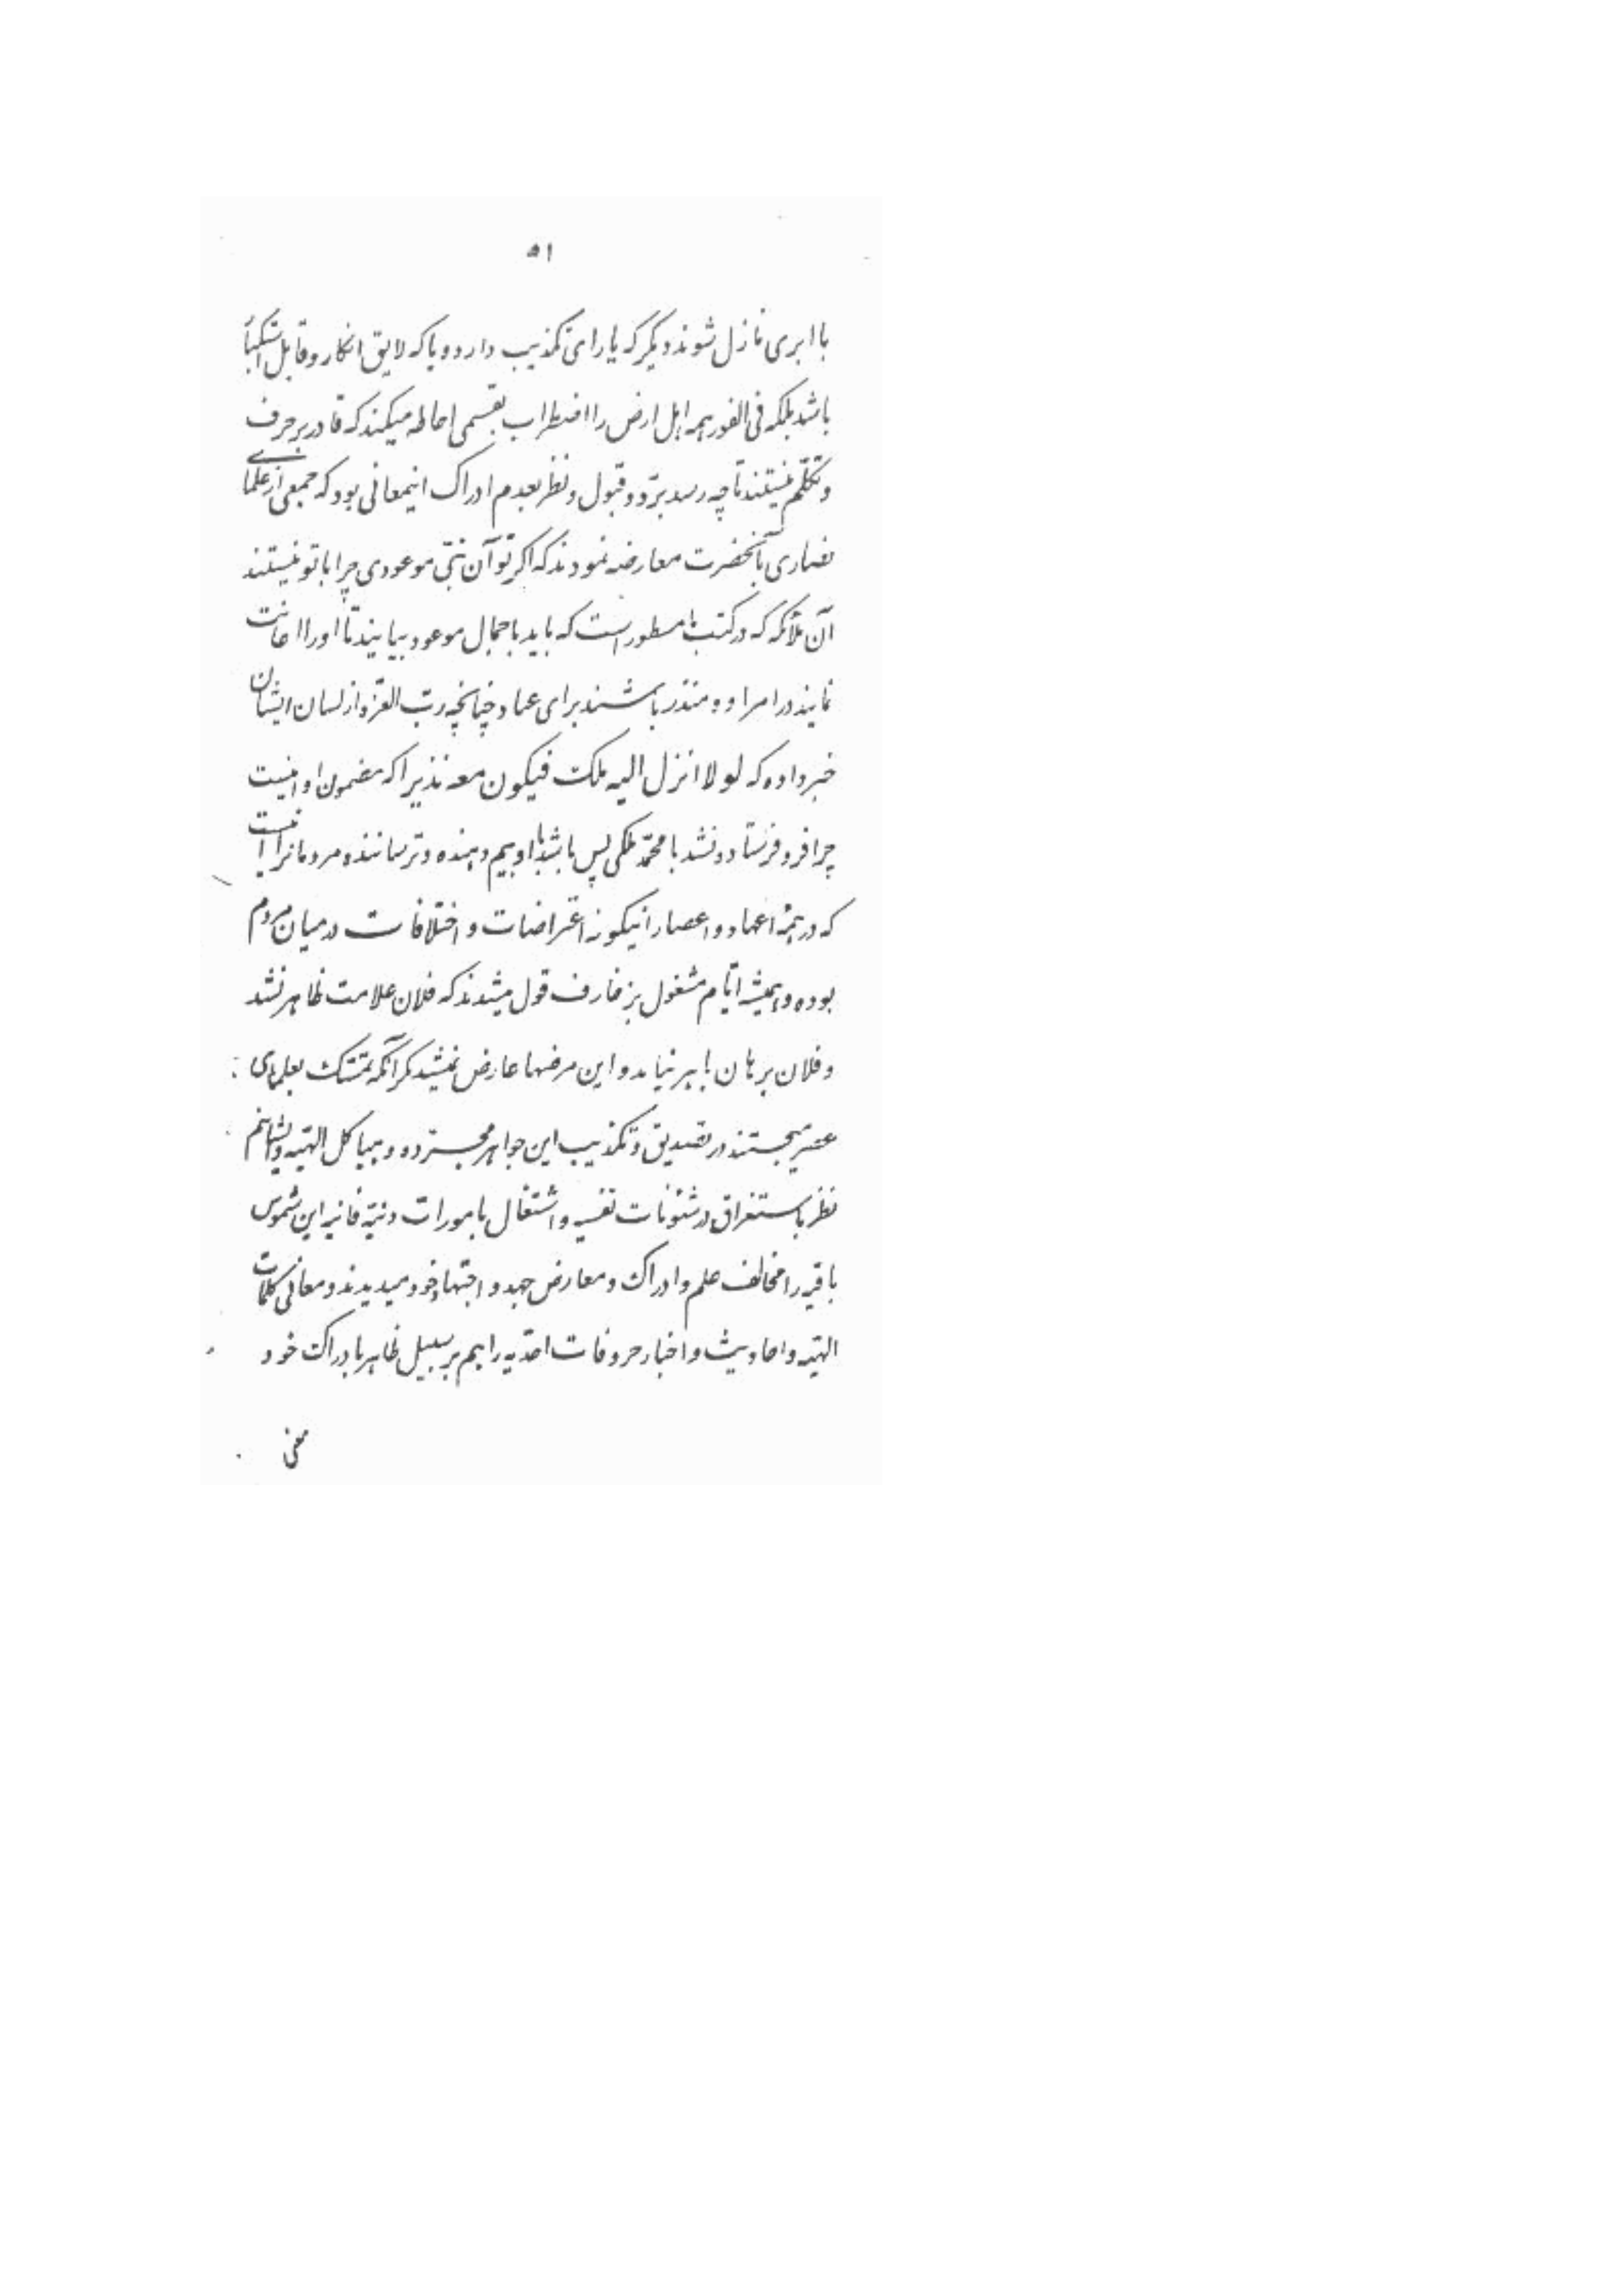 ۵۱
با ابری نازل شوند دیگر که یارای تکذیب دارد و یا که لایق انکار و قابل استکبار
باشد بلکه فی الفور همه اهل ارض را اضطراب بقسمی احاطه میکند که قادر بر حرف
و تکلّم نیستند تا چه رسد بردّ و قبول و نظر بعدم ادراک اینمعانی بود که جمعی از علمای
نصاری بآنحضرت معارضه نمودند که اگر تو آن نبّی موعودی چرا با تو نیستند
آن ملائکه که در کتب ما مسطور است که باید با جمال موعود بیایند تا او را اعانت
نمایند در امر او و منذر باشند برای عباد چنانچه ربّ العزّه از لسان ایشان
خبر داده که لولا انزل الیه ملک فیکون معه نذیرا که مضمون او اینست
چرا فرو فرستاده نشد با محمّد ملکی پس باشد با او بیم دهنده و ترساننده مردمانرا اینست
که در همهٔ اعهاد و اعصار اینگونه اعتراضات و اختلافات در میان مردم
بوده و همیشه ایّام مشغول بزخارف قول میشدند که فلان علامت ظاهر نشد
و فلان برهان باهر نیامد و این مرضها عارض نمیشد مگر آنکه تمسّک بعلمای
عصر میجستند در تصدیق و تکذیب این جواهر مجرّده و هیاکل الهیّه و ایشانهم
نظر باستغراق در شئونات نفسیه و اشتغال بامورات دنیّه فانیه این شموس
باقیه را مخالف علم و ادراک و معارض جهد و اجتهاد خود میدیدند و معانی کلمات
الهیّه و احادیث و اخبار حروفات احدّیه را هم بر سبیل ظاهر بادراک خود
معنی